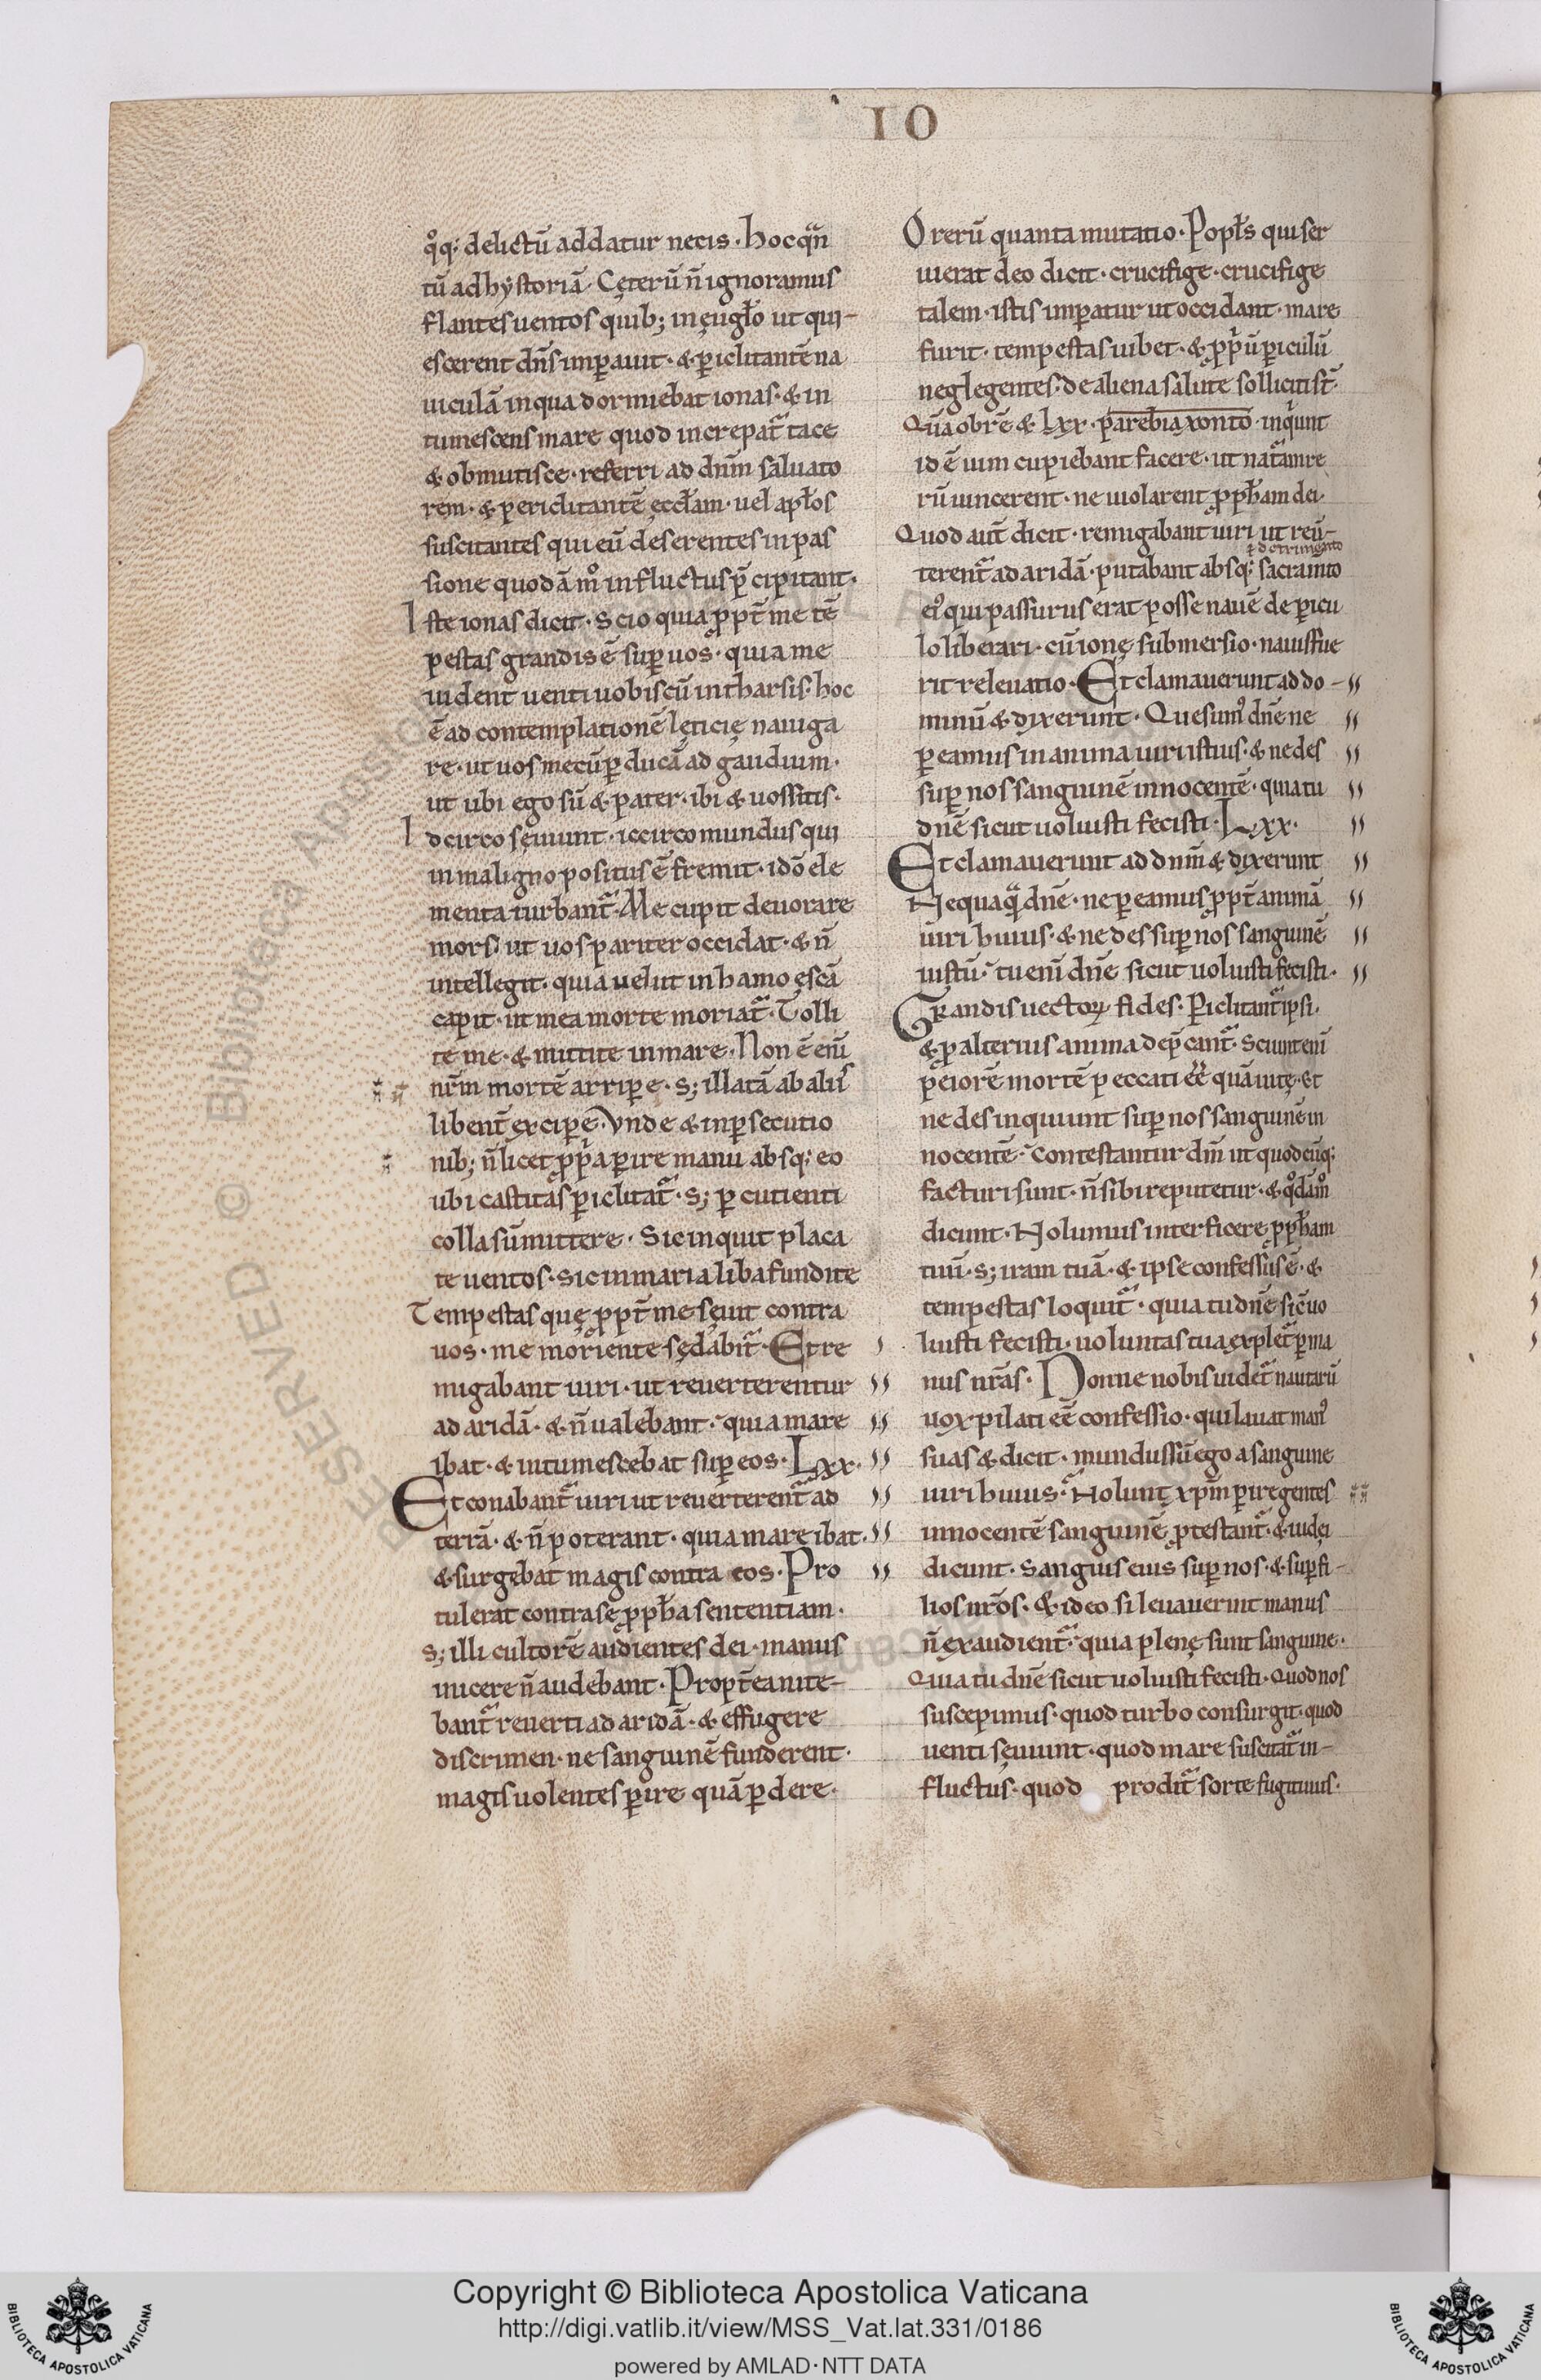 IO
q̊q; delictū addatur necis. hoc qͣn
tū ad hystoriā. Cęterū n̄ ignoramus
flantes uentos quib; in ęuglo ut qui-
escerent dn̄s imꝑauit. & ꝑiclitantē na
uiculā in qua dormiebat ionas. & in
tumescens mare quod increpat᷑ tace
& obmutisce. referri ad dn̄m saluato
rem. & periclitantē ęccl̄am. uel apłos
suscitantes qui eū deserentes in pas
sione quodā m̊ in fluctus p̄cipitant.
Iste ionas dicit. Scio quia ꝓpt̄ me tē
pestas grandis ē suꝑ uos. quia me
uident uenti uobiscū in tharsis. hoc
ē ad contemplationē lęticię nauiga
re. ut uos mecū ꝑducā ad gaudium.
ut ubi ego sū & pater. ibi & uos sitis.
Idcirco sęuiunt. iccirco mundus qui
in maligno positus ē fremit. idō ele
menta turbant᷑. Me cupit deuorare
mors. ut uos pariter occidat. & n̄
intellegit. quia uelut in hamo ęscā
capit. ut mea morte moriat᷑. Tolli
te me. & mittite in mare. Non ē enī
nr̄m mortē arriꝑe. s; illatā ab aliis
libent̄ exciꝑe. Vnde & in ꝑsecutio
nib; n̄ licet ꝓpͥa ꝑire manu absq; eo
ubi castitas ꝑiclitat᷑. s; ꝑcutienti
colla sūmittere. Sic inquit placa
te uentos. sic in maria liba fundite
Tempestas quę ꝓpt̄ me sęuit contra
uos. me moriente sędabit᷑. Et re
migabant uiri. ut reuerterentur
ad aridā. & n̄ ualebant. quia mare
ibat. & intumescebat suꝑ eos. Lxx.
Et conabant᷑ uiri ut reuerterent᷑ ad
terrā. & n̄ poterant. quia mare ibat.
& surgebat magis contra eos. Pro
tulerat contra sę ꝓph̄a sententiam.
s; illi cultorē audientes dei. manus
inicere n̄ audebant. Propt̄ea nite-
bant᷑ reuerti ad aridā. & effugere
discrimen. ne sanguinē funderent.
magis uolentes ꝑire quā ꝑdere.
O rerū quanta mutatio. Popłs qui ser
uierat deo dicit. crucifige. crucifige
talem. istis imꝑatur ut occidant. mare
furit. tempestas iubet. & ꝓpͥū ꝑiculū
neglegentes. de aliena salute solliciti st̄.
Quā obrē & lxx. parebiaxonto. inqͥunt
id ē uim cupiebant facere. ut nat᷑am re
rū uincerent. ne uiolarent ꝓph̄am dei.
Quod aut̄ dicit. remigabant uiri ut reū-
& detrimento
terent᷑ ad aridā. putabant absq; sacramto
ei᷒ qui passurus erat posse nauē de ꝑicu
lo liberari. cū ionę submersio. nauis fue
rit releuatio. Et clamauerunt ad do-
minū & dixerunt. Quesum᷒ dn̄e ne
ꝑeamus in anima uiri istius. & ne des
suꝑ nos sanguinē innocentē. quia tu
dn̄e sicut uoluisti fecisti. Lxx.
Et clamauerunt ad dn̄m & dixerunt
Nequaqͣ dn̄e. ne ꝑeamus ꝓpt̄ animā
uiri huius. & ne des suꝑ nos sanguinē
iustū. tu enī dn̄e sicut uoluisti fecisti.
Grandis uectoꝝ fides. Ꝑiclitant᷑ ipsi.
& ꝓ alterius anima dep̄cant᷑. Sciunt enī
peiorē mortē peccati ee᷑ quā uitę. Et
ne des inquiunt suꝑ nos sanguinē in
nocentē. Contestantur dm̄ ut quodcūq;
facturi sunt. n̄ sibi reputetur. & q̊dām̊
dicunt. Nolumus interficere ꝓph̄am
tuū. s; iram tuā. & ipse confessus ē. &
tempestas loquit᷑. quia tu dn̄e sic̄ uo
luisti fecisti. uoluntas tua explet᷑ ꝑ ma
nus nr̄as. Nonne nobis uidet᷑ nautarū
uox pilati ēē confessio. qui lauat man᷒
suas & dicit. mundus sū ego a sanguine
uiri huius. Nolunt xp̄m ꝑire gentes
innocentē sanguinē ꝓtestant᷑. & iudęi
dicunt. Sanguis eius suꝑ nos. & suꝑ fi-
lios nr̄os. & ideo si leuauerint manus
n̄ exaudient᷑. quia plenę sunt sanguine.
Quia tu dn̄e sicut uoluisti fecisti. Quod nos
suscepimus. quod turbo consurgit. quod
uenti sęuiunt. quod mare suscitat᷑ in-
fluctus. quod prodit᷑ sorte fugitiuus.
Copyright © Biblioteca Apostolica Vaticana
http://digi.vatlib.it/view/MSS_Vat.lat.331/0186
powered by AMLAD·NTT DATA
BIBLIOTECA APOSTOLICA VATICANA
BIBLIOTECA APOSTOLICA VATICANA